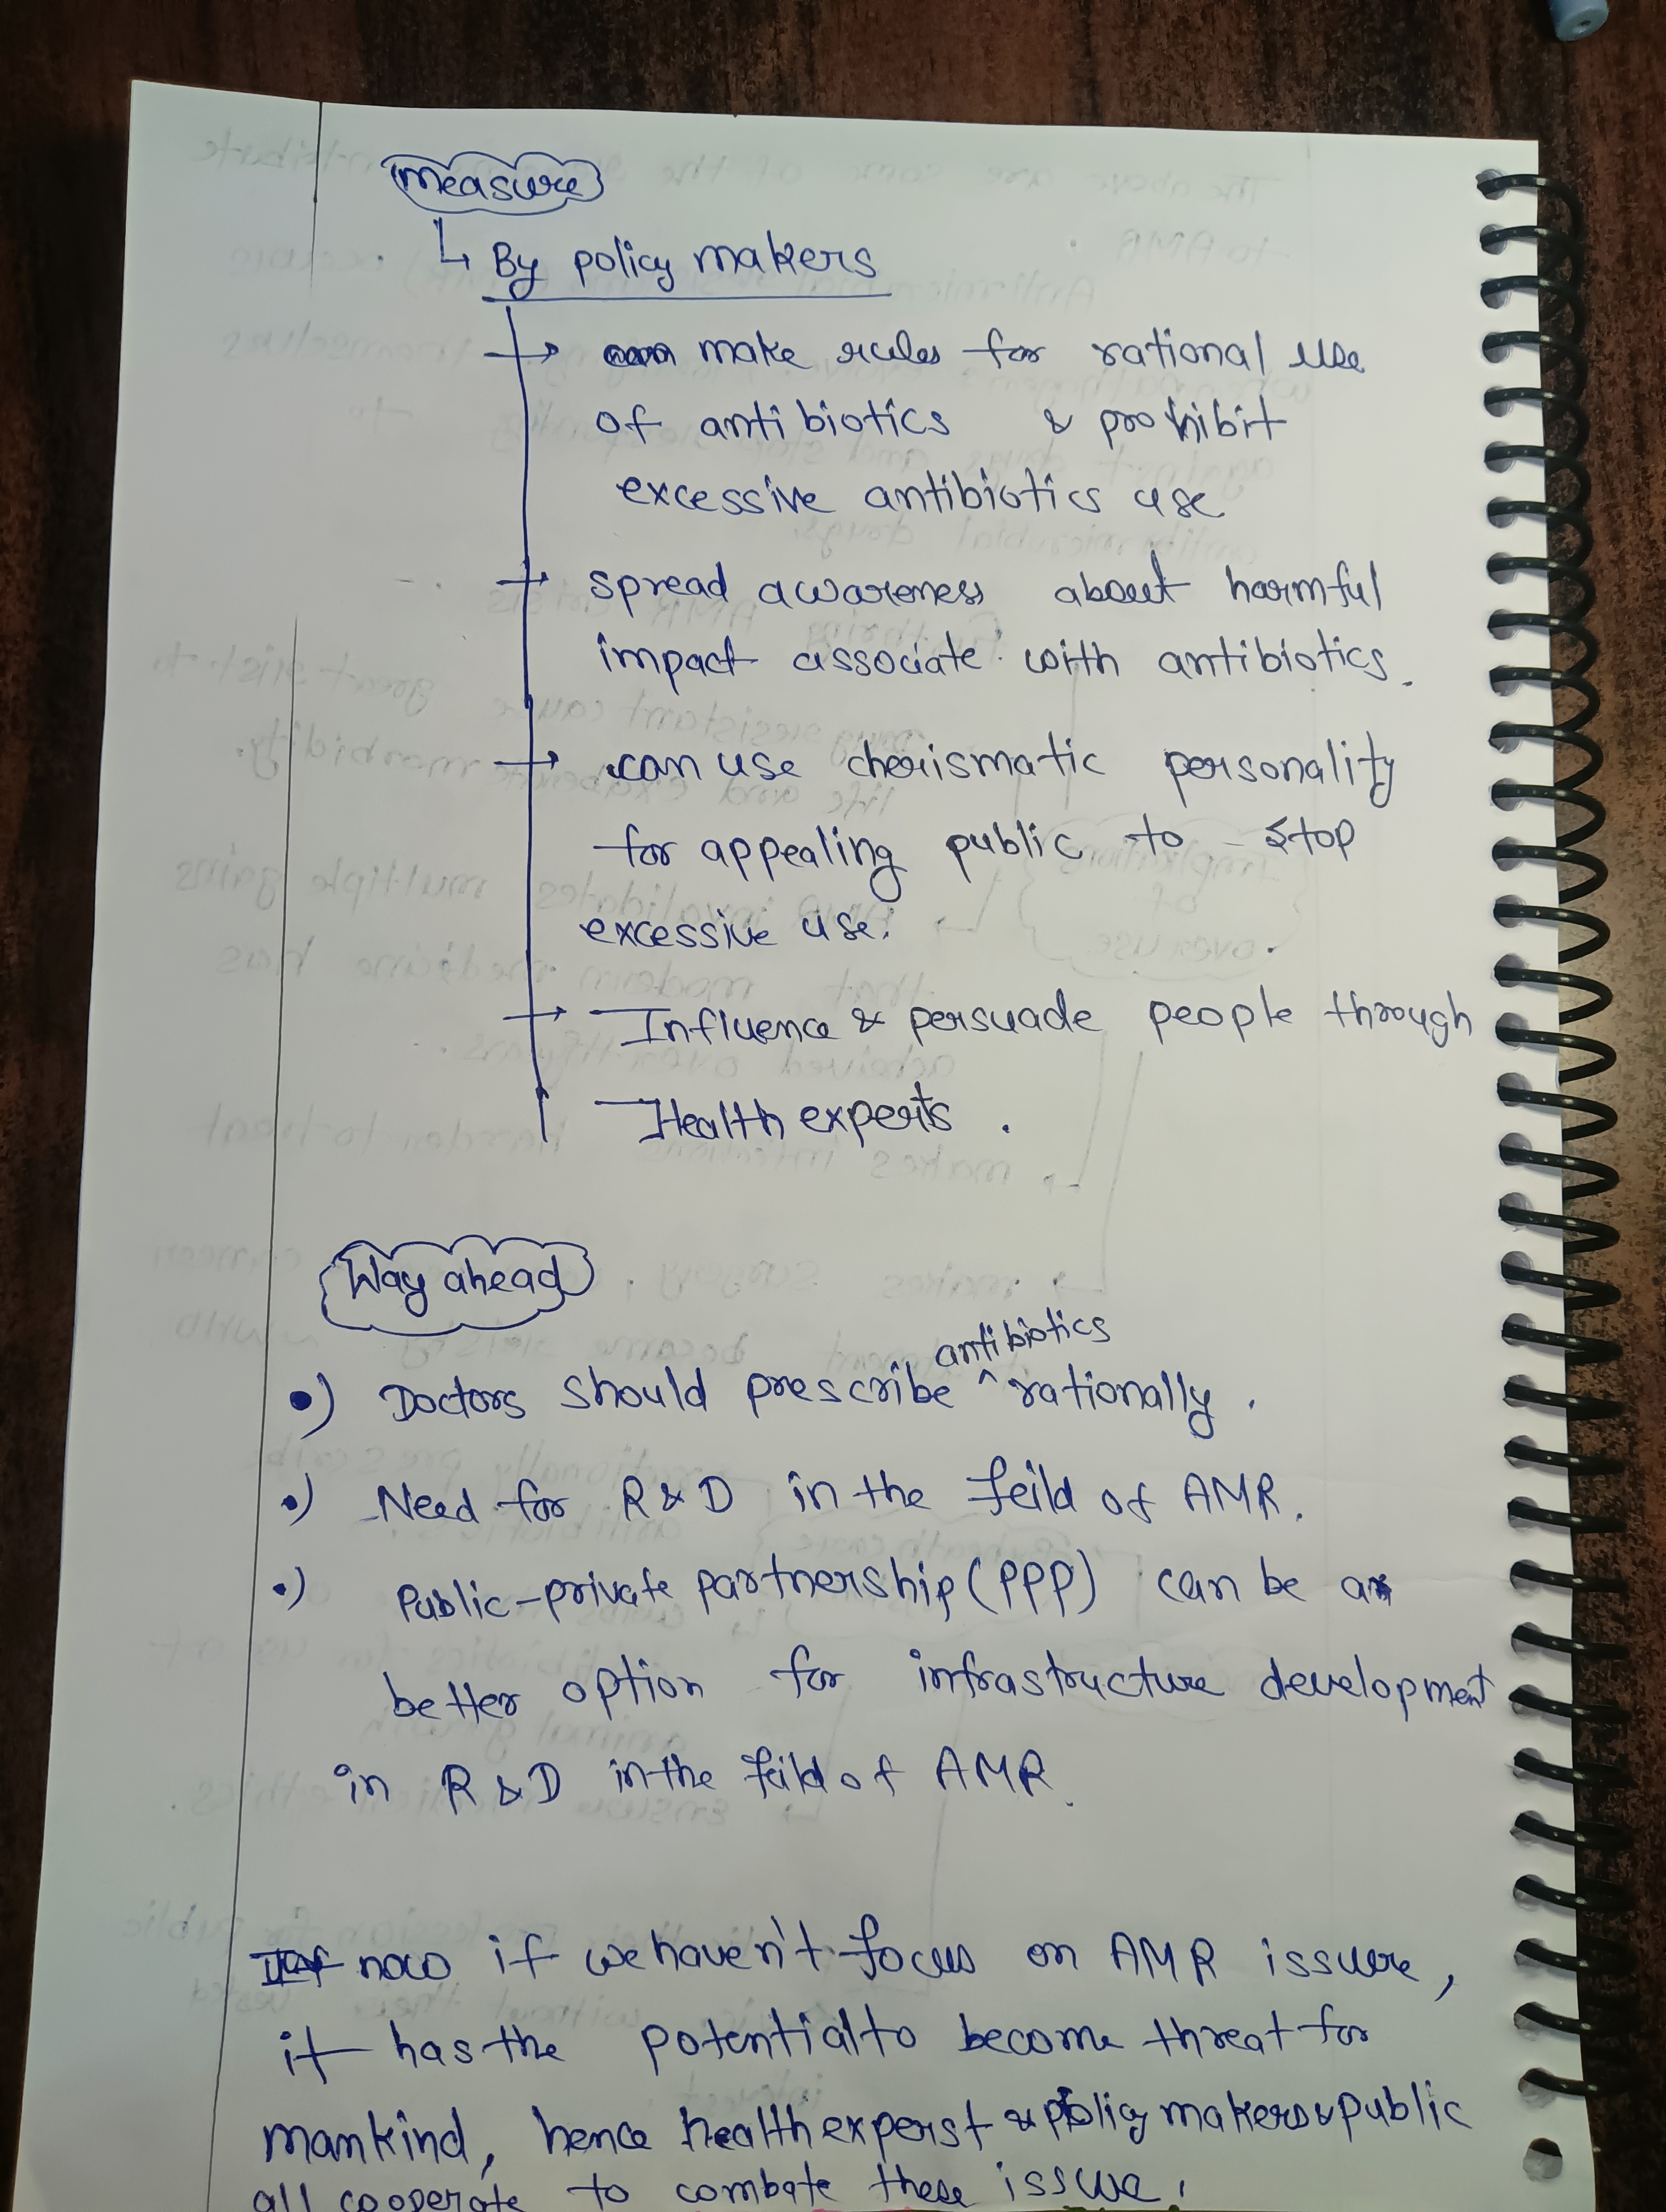 Measure
↳ By policy makers
→ make rules for rational use
of antibiotics & prohibit
excessive antibiotics use
→ spread awareness about harmful
impact associate with antibiotics.
→ can use cherismatic personality
for appealing public to stop
excessive use.
→ Influence & persuade people through
Health experts.
Way ahead
antibiotics
•) Doctors should prescribe ^ rationally.
•) Need for R&D in the feild of AMR.
•) Public-private partnership (PPP) can be a
better option for infrastructure development
in R&D in the feild of AMR.
now if we haven't focus on AMR issure,
it has the potential to become threat for
mankind, hence health experst & policy makers & public
all cooperate to combate these issue.